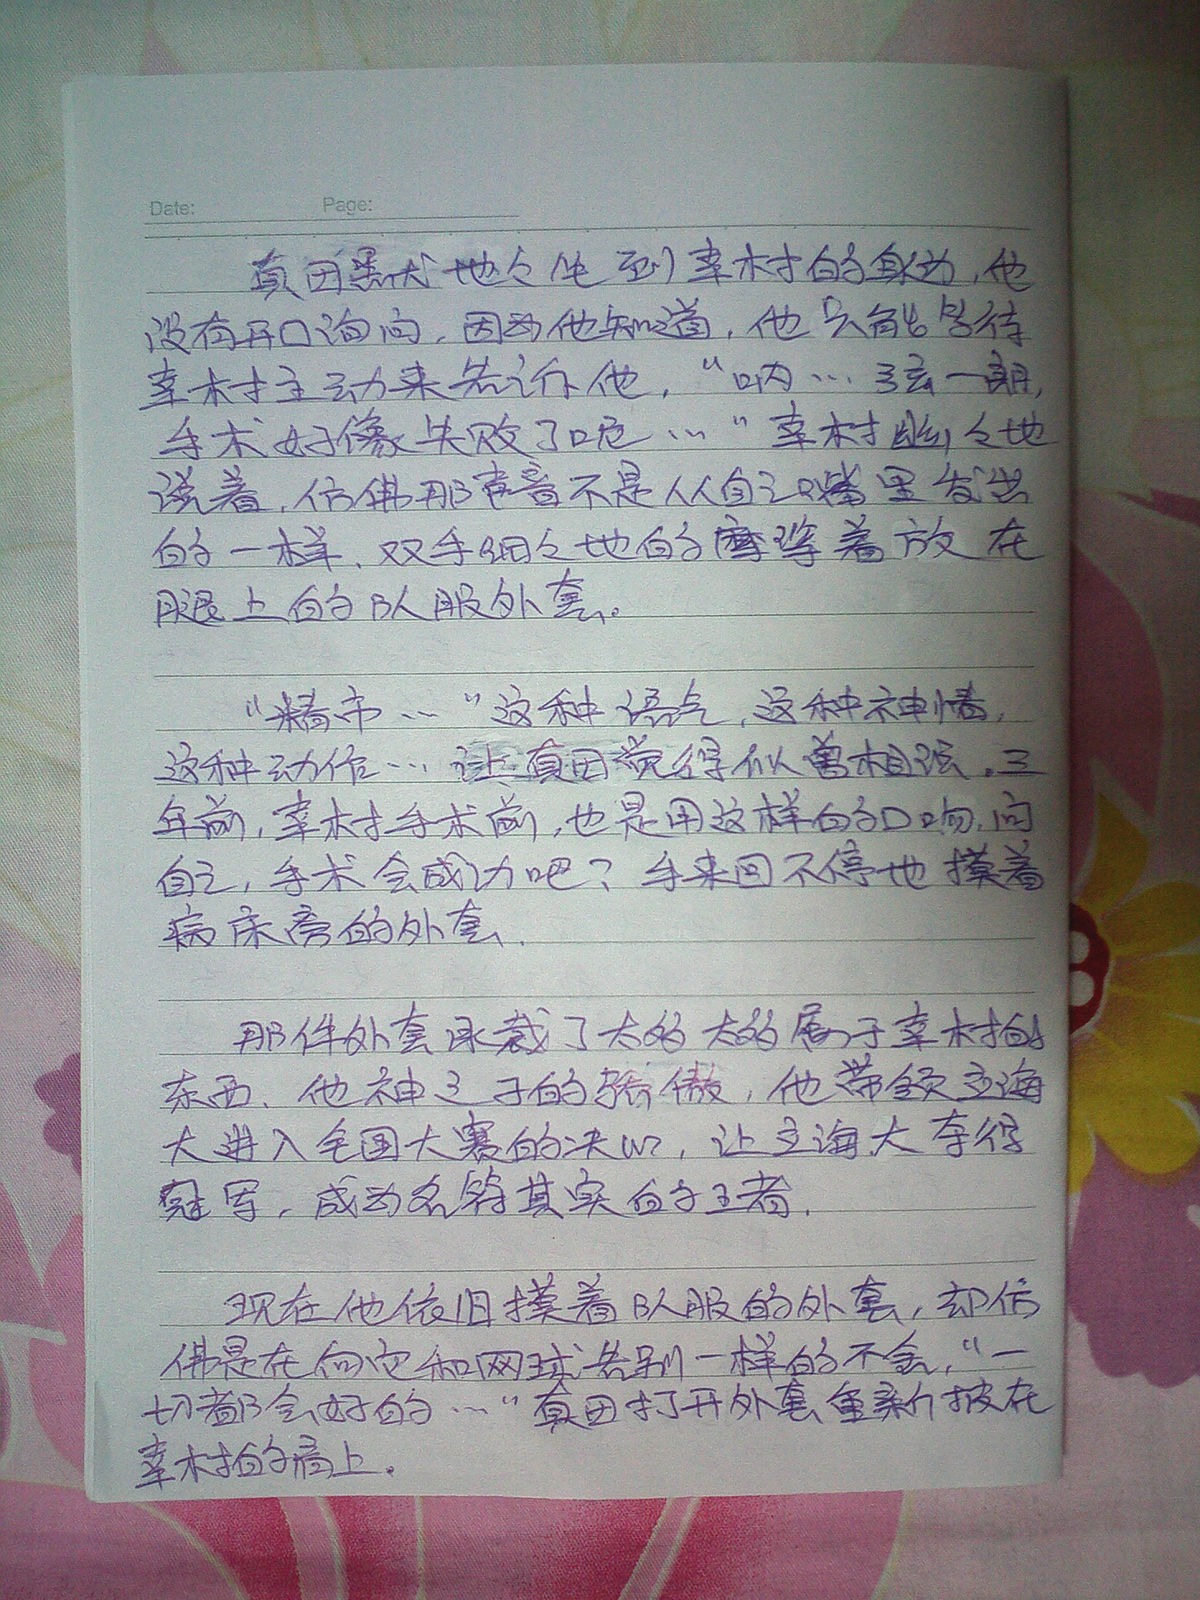 Date: Page:
真田默默地々坐到幸村的身边，他
没有开口询问，因为他知道，他只能等待
幸村主动来告诉他，“呐…弦一郎，
手术好像失败了呢…”幸村幽々地
说着，仿佛那声音不是从自己嘴里发出
的一样、双手细々地的摩挲着放在
腿上的队服外套。
“精市…”这种语气，这种神情，
这种动作…让真田觉得似曾相识。三
年前，幸村手术前，也是用这样的口吻，问
自己，手术会成功吧？手来回不停地摸着
病床旁的外套．
那件外套承载了太多太多属于幸村的
东西、他神之子的骄傲，他带领立海
大进入全国大赛的决心，让立海大夺得
冠军，成为名符其实的王者．
现在他依旧摸着队服的外套，却仿
佛是在向它和网球告别一样的不舍，“一
切都会好的…”真田打开外套重新披在
幸村的肩上．